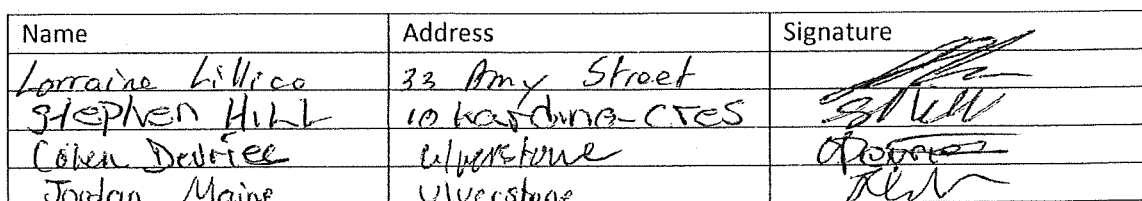 Name Address Signature
Lorraine Lillico 33 Amy Street
Stephen Hill 10 Kardina Cres SHill
Devries Ulverstone
Jordan Maine Ulverstone